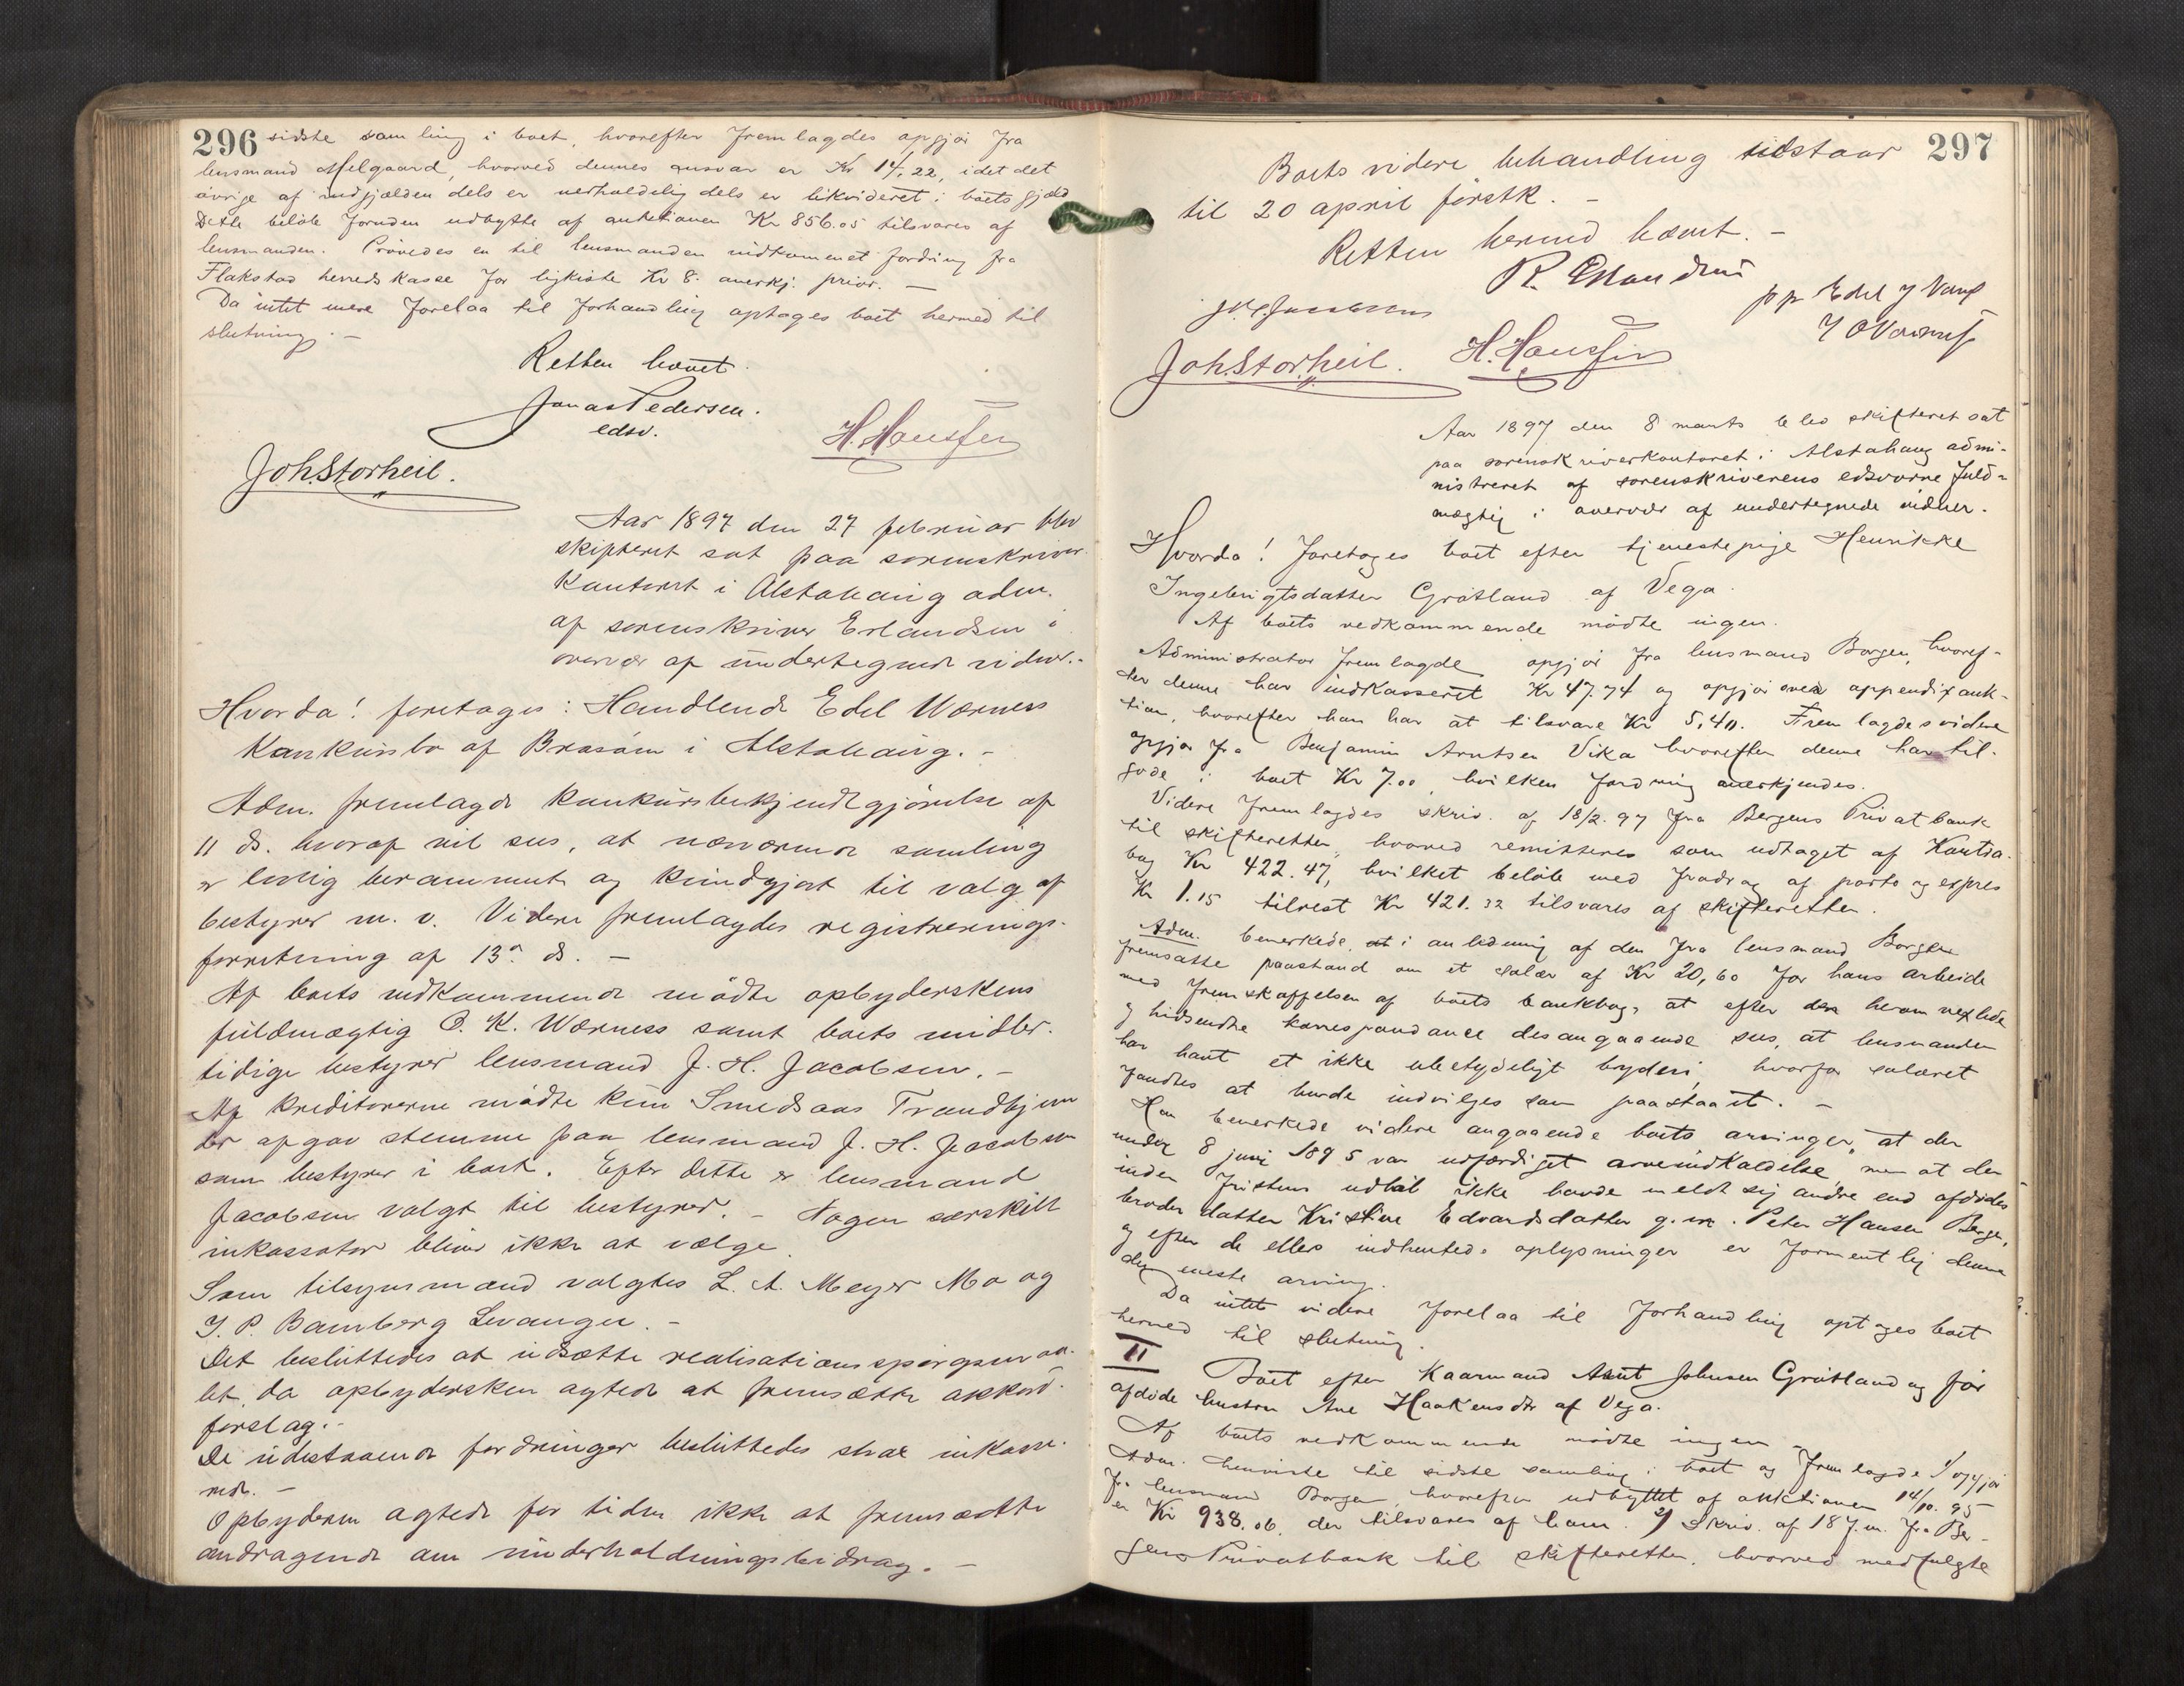 296 sidste samling i boet, hvorefter fremlagdes opgjør fra
lensmand Melgaard, hvorved dennes ansvar er Kr 14,22, idet det
øvrige af indgjælden dels er uerholdelig dels er likvideret i boets gjæld
Dette beløb foruden udbytte af auktionen Kr 856.05 tilsvares af
lensmanden. Prøvedes en til lensmanden indkommet fordring fra
Flakstad herreds kasse for ligkiste Kr 8. anerkj. prior. –
Da intet mere forelaa til forhandling optages boet hermed til
slutning. –
Retten hævet.
Jonas Pedersen.
edsv.
H. Hansen
Joh. Storheil.
Aar 1897 den 27 februar blev
skifteret sat paa sorenskriver-
kontoret i Alstahaug adm.
af sorenskriver Erlandsen i
overvær af undertegnede vidner.-
Hvorda! foretages: Handlende Edel Wærness
Konkursbo af Brasøen i Alstahaug. –
Adm. fremlagde konkursbekjendtgjørelse af
11 ds. hvoraf vil sees, at nærværende samling
er lovlig berammet og kundgjort til valg af
bestyrer m. v. Videre fremlagdes registrerings-
forretning af 13. ds. –
Af boets vedkommende mødte opbyderskens
fuldmægtig O. K. Wærness samt boets midler-
tidige bestyrer lensmand J. H. Jacobsen. –
Af kreditorerne mødte kun Smedsaas Trondhjem
der afgav stemme paa lensmand J. H. Jacobsen
som bestyrer i boet. Efter dette er lensmand
Jacobsen valgt til bestyrer. – Nogen særskilt
inkassator bliver ikke at vælge.
Som tilsynsmænd valgtes L. A. Meyer Mo og
J. P. Bamberg Levanger. –
Det besluttedes at udsætte realisationsspørgsmaa-
let, da opbydersken agtede at fremsætte akkord-
forslag. –
De udestaaende fordringer besluttedes strax inkasse-
rede. –
Opbyderen agtede for tiden ikke at fremsætte
andragende om underholdningsbidrag. –
297
Boets videre behandling udstaar
til 20 april førstk. –
Retten herved hævet. –
R. Erlandsen
J. H. Jacobsen
pp Edel J Værnes
Joh. Storheil. H. Hansen
Aar 1897 den 8 marts blev skifteret sat
paa sorenskriverkontoret i Alstahaug admi-
nistreret af sorenskriverens edsvorne fuld-
mægtig i overvær af undertegnede vidner.
Hvorda! foretages boet efter tjenestepige Henrikke
Ingebrigtsdatter Grøtland af Vega.
Af boets vedkommende mødte ingen.
Administrator fremlagde opgjør fra lensmand Borgen, hvoref-
ter denne har indkasseret Kr 47.74 og opgjør over appendixauk-
tion, hvorefter han har at tilsvare Kr 5,40. Fremlagdes videre
opgjør fra Benjamin Arntsen Vika hvorefter denne har til-
gode i boet Kr 7.00, hvilken fordring anerkjendes.
Videre fremlagdes skriv. af 18/2. 97 fra Bergens Privatbank
til skifteretten, hvorved remitteres som udtaget af Kontra-
bog Kr 422.47, hvilket beløb med fradrag af porto og expres
Kr 1.15 tilrest Kr 421.32 tilsvares af skifteretten.
Adm. bemerkede, at i anledning af den fra lensmand Borgen
fremsatte paastand om et salær af Kr 20,60 for hans arbeide
med fremskaffelsen af boets bankbog, at efter den herom vexlede
og hidsendte korrespondance desangaaende sees, at lensmanden
har havt et ikke ubetydeligt bryderi, hvorfor salæret
fandtes at burde indvilges som paastaaet. –
Han bemerkede videre angaaende boets arvinger, at der
under 8 juni 1895 var udfærdiget arveindkaldelse men at der
inden fristens udløb ikke havde meldt sig andre end afdødes
broder datter Kristine Edvardsdatter g. m. Peter Hansen Berge,
og efter de ellers indhentede oplysninger er formentlig denne
den eneste arving.
Da intet videre forelaa til forhandling optages boet
hermed til slutning.
II Boet efter Kaarmand Arnt Johnsen Grøtland og før
afdøde hustru Ane Haakensdtr af Vega.
Af boets vedkommende mødte ingen.
Adm. henviste til sidste samling i boet og fremlagde 1/ opgjør
fr lensmand Borgen, hvorefter udbyttet af auktionen 14/10. 95
er Kr 938.06, der tilsvares af ham. 2/ Skriv. af 18 f. m. fra Ber-
gens Privatbank til skifteretten, hvorved medfulgte